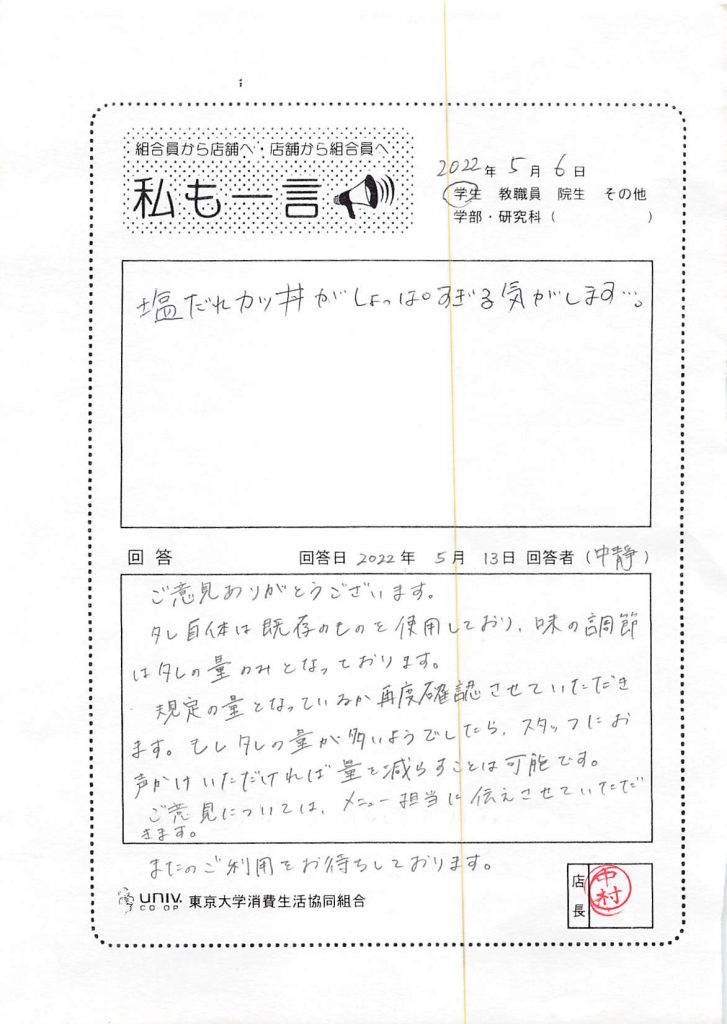 組合員から店舗へ・店舗から組合員へ
私も一言
2022年 5月 6日
学生 教職員 院生 その他
学部・研究科( )
塩だれカツ丼がしょっぱすぎる気がします…。
回答 回答日 2022年 5月 13日 回答者(中静)
ご意見ありがとうございます。
タレ自体は既存のものを使用しており、味の調節
はタレの量のみとなっております。
規定の量となっているか再度確認させていただき
ます。もしタレの量が多いようでしたら、スタッフにお
声かけいただければ量を減らすことは可能です。
ご意見については、メニュー担当に伝えさせていただ
きます。
またのご利用をお待ちしております。
UNIV. CO-OP 東京大学消費生活協同組合
店長
中村